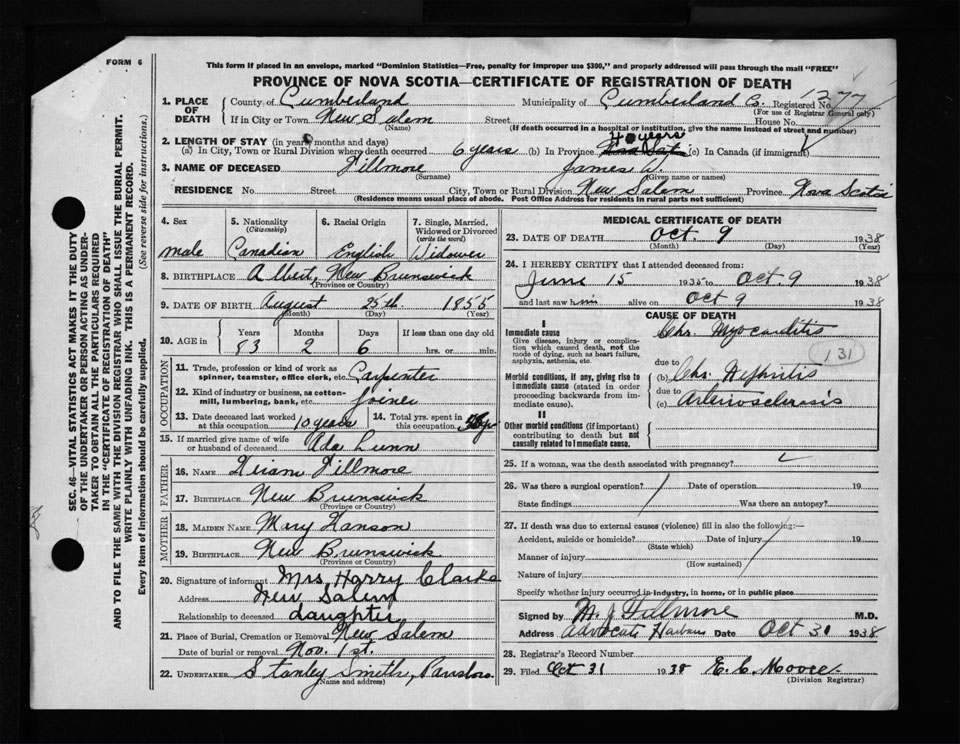 FORM 6
This form if placed in an envelope, marked "Dominion Statistics—Free, penalty for improper use $300," and properly addressed will pass through the mail "FREE"
PROVINCE OF NOVA SCOTIA—CERTIFICATE OF REGISTRATION OF DEATH
1277
1. PLACE OF DEATH County of Cumberland Municipality of Cumberland Co. Registered No.
(For use of Registrar General only)
If in City or Town New Salem Street House No.
(Name) (If death occurred in a hospital or institution, give the name instead of street and number)
2. LENGTH OF STAY (in years, months and days)
(a) In City, Town or Rural Division where death occurred 6 years (b) In Province 40 years (c) In Canada (if immigrant)
3. NAME OF DECEASED Fillmore James W.
(Surname) (Given name or names)
RESIDENCE No. Street City, Town or Rural Division New Salem Province Nova Scotia
(Residence means usual place of abode. Post Office Address for residents in rural parts not sufficient)
4. Sex male
5. Nationality (Citizenship) Canadian
6. Racial Origin English
7. Single, Married, Widowed or Divorced (write the word) Widower
8. BIRTHPLACE Albert, New Brunswick
(Province or Country)
9. DATE OF BIRTH August 25th. 1855
(Month) (Day) (Year)
10. AGE in Years Months Days If less than one day old
83 2 6 hrs. or min.
OCCUPATION
11. Trade, profession or kind of work as spinner, teamster, office clerk, etc. Carpenter
12. Kind of industry or business, as cotton-mill, lumbering, bank, etc. Joiner
13. Date deceased last worked at this occupation 10 years
14. Total yrs. spent in this occupation
15. If married give name of wife or husband of deceased Ada Lunn
FATHER
16. NAME Fillmore
17. BIRTHPLACE New Brunswick
(Province or Country)
MOTHER
18. MAIDEN NAME Mary Hanson
19. BIRTHPLACE New Brunswick
(Province or Country)
20. Signature of informant Mrs Harry Clarke
Address New Salem
Relationship to deceased daughter
21. Place of Burial, Cremation or Removal New Salem
Date of burial or removal Nov. 1st.
22. UNDERTAKER Stanley Smith, Parrsboro
(Name and address)
MEDICAL CERTIFICATE OF DEATH
23. DATE OF DEATH Oct. 9 1938
(Month) (Day) (Year)
24. I HEREBY CERTIFY that I attended deceased from:
June 15 193 to Oct. 9 1938
and last saw him alive on Oct 9 1938
CAUSE OF DEATH
I
Immediate cause
Give disease, injury or complication which caused death, not the mode of dying, such as heart failure, asphyxia, asthenia, etc.
Chr. Myocarditis
131
due to
Morbid conditions, if any, giving rise to immediate cause (stated in order proceeding backwards from immediate cause).
(b) Chr. Nephritis
due to
(c) Arteriosclerosis
II
Other morbid conditions (if important) contributing to death but not causally related to immediate cause.
25. If a woman, was the death associated with pregnancy?
26. Was there a surgical operation? Date of operation 19
State findings Was there an autopsy?
27. If death was due to external causes (violence) fill in also the following:—
Accident, suicide or homicide? Date of injury 19
(State which)
Manner of injury
(How sustained)
Nature of injury
Specify whether injury occurred in industry, in home, or in public place
Signed by M. J. Fillmore M.D.
Address Advocate Harbour Date Oct 31 1938
28. Registrar's Record Number
29. Filed Oct 31 1938 E. C. Moore
(Division Registrar)
SEC. 46—VITAL STATISTICS ACT MAKES IT THE DUTY
OF THE UNDERTAKER OR PERSON ACTING AS UNDER-
TAKER TO OBTAIN ALL THE PARTICULARS REQUIRED
IN THE "CERTIFICATE OF REGISTRATION OF DEATH"
AND TO FILE THE SAME WITH THE DIVISION REGISTRAR WHO SHALL ISSUE THE BURIAL PERMIT.
WRITE PLAINLY WITH UNFADING INK. THIS IS A PERMANENT RECORD.
Every item of information should be carefully supplied. (See reverse side for instructions.)